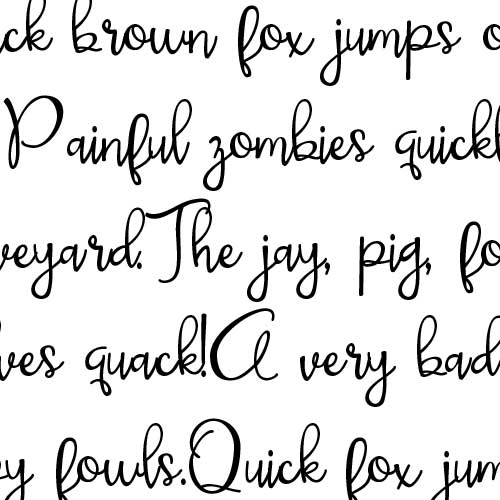 ck brown fox jumps o
Painful zombies quickl
veyard.The jay, pig, fo
ves quack!A very bad
y fowls.Quick fox jum